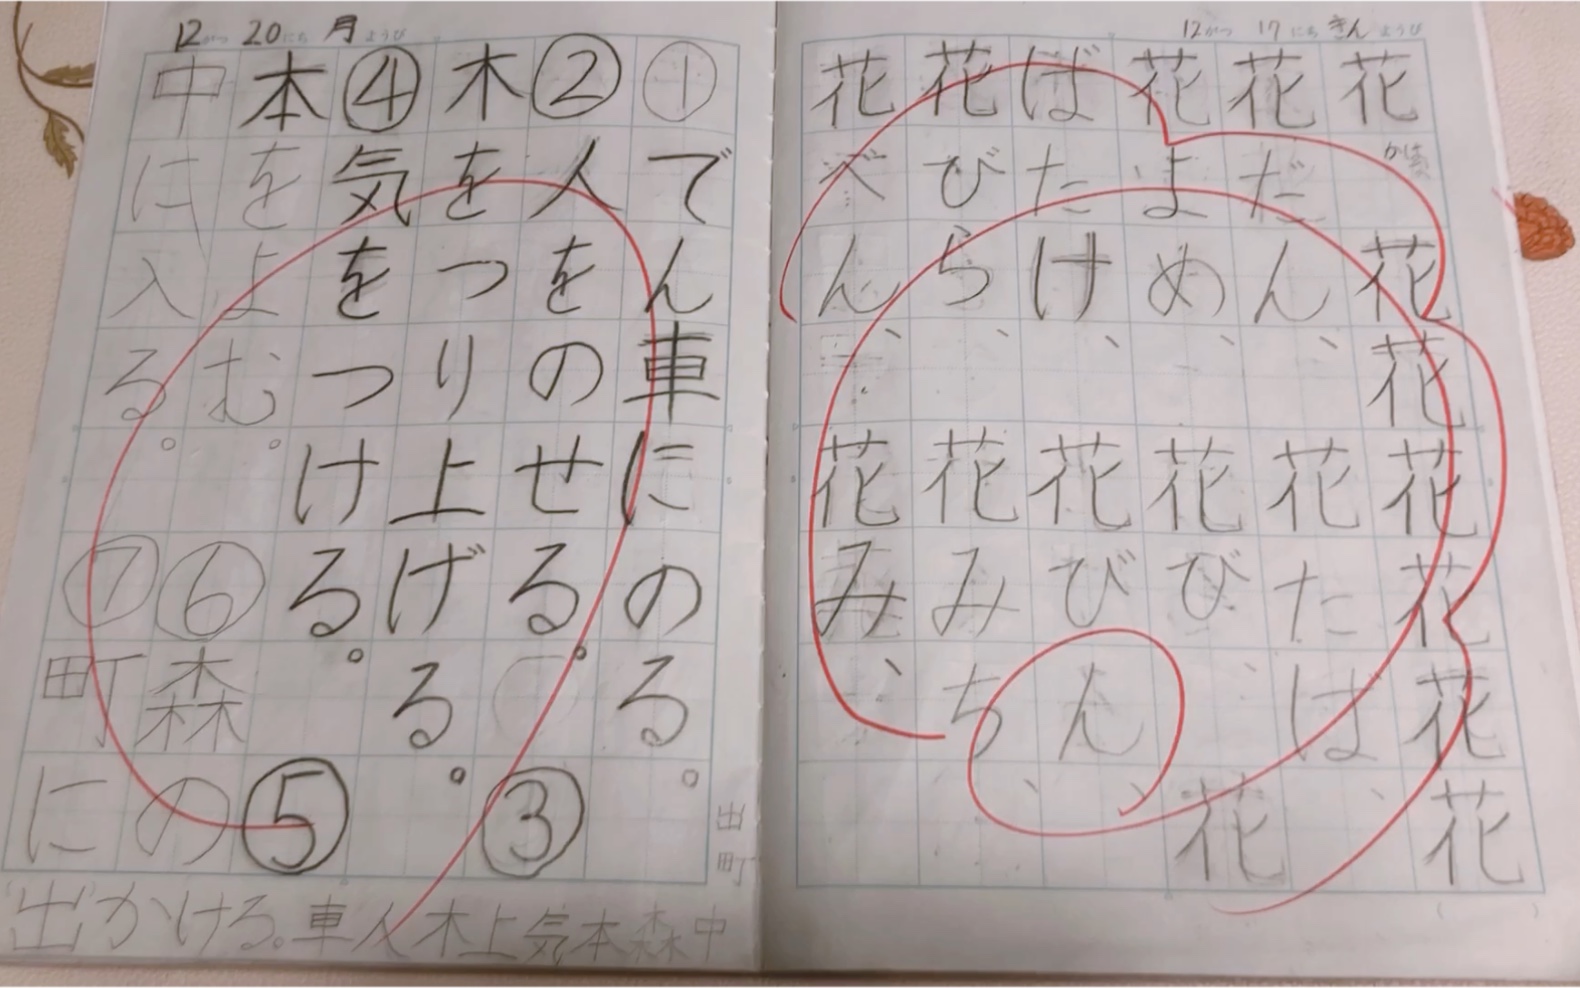 12がつ 17にち きんようび
花 か 花花花花花花
花だん、花たば、
花よめ、花び、花
ばたけ、花びん、
花びら、花みち、
花べん、花み、
12がつ 20にち 月ようび
①でん車にのる。
②人をのせる。③
木をつり上げる。
④気をつける。⑤
本をよむ。⑥森の
中に入る。⑦町に
出かける。車人木上気本森中
出町